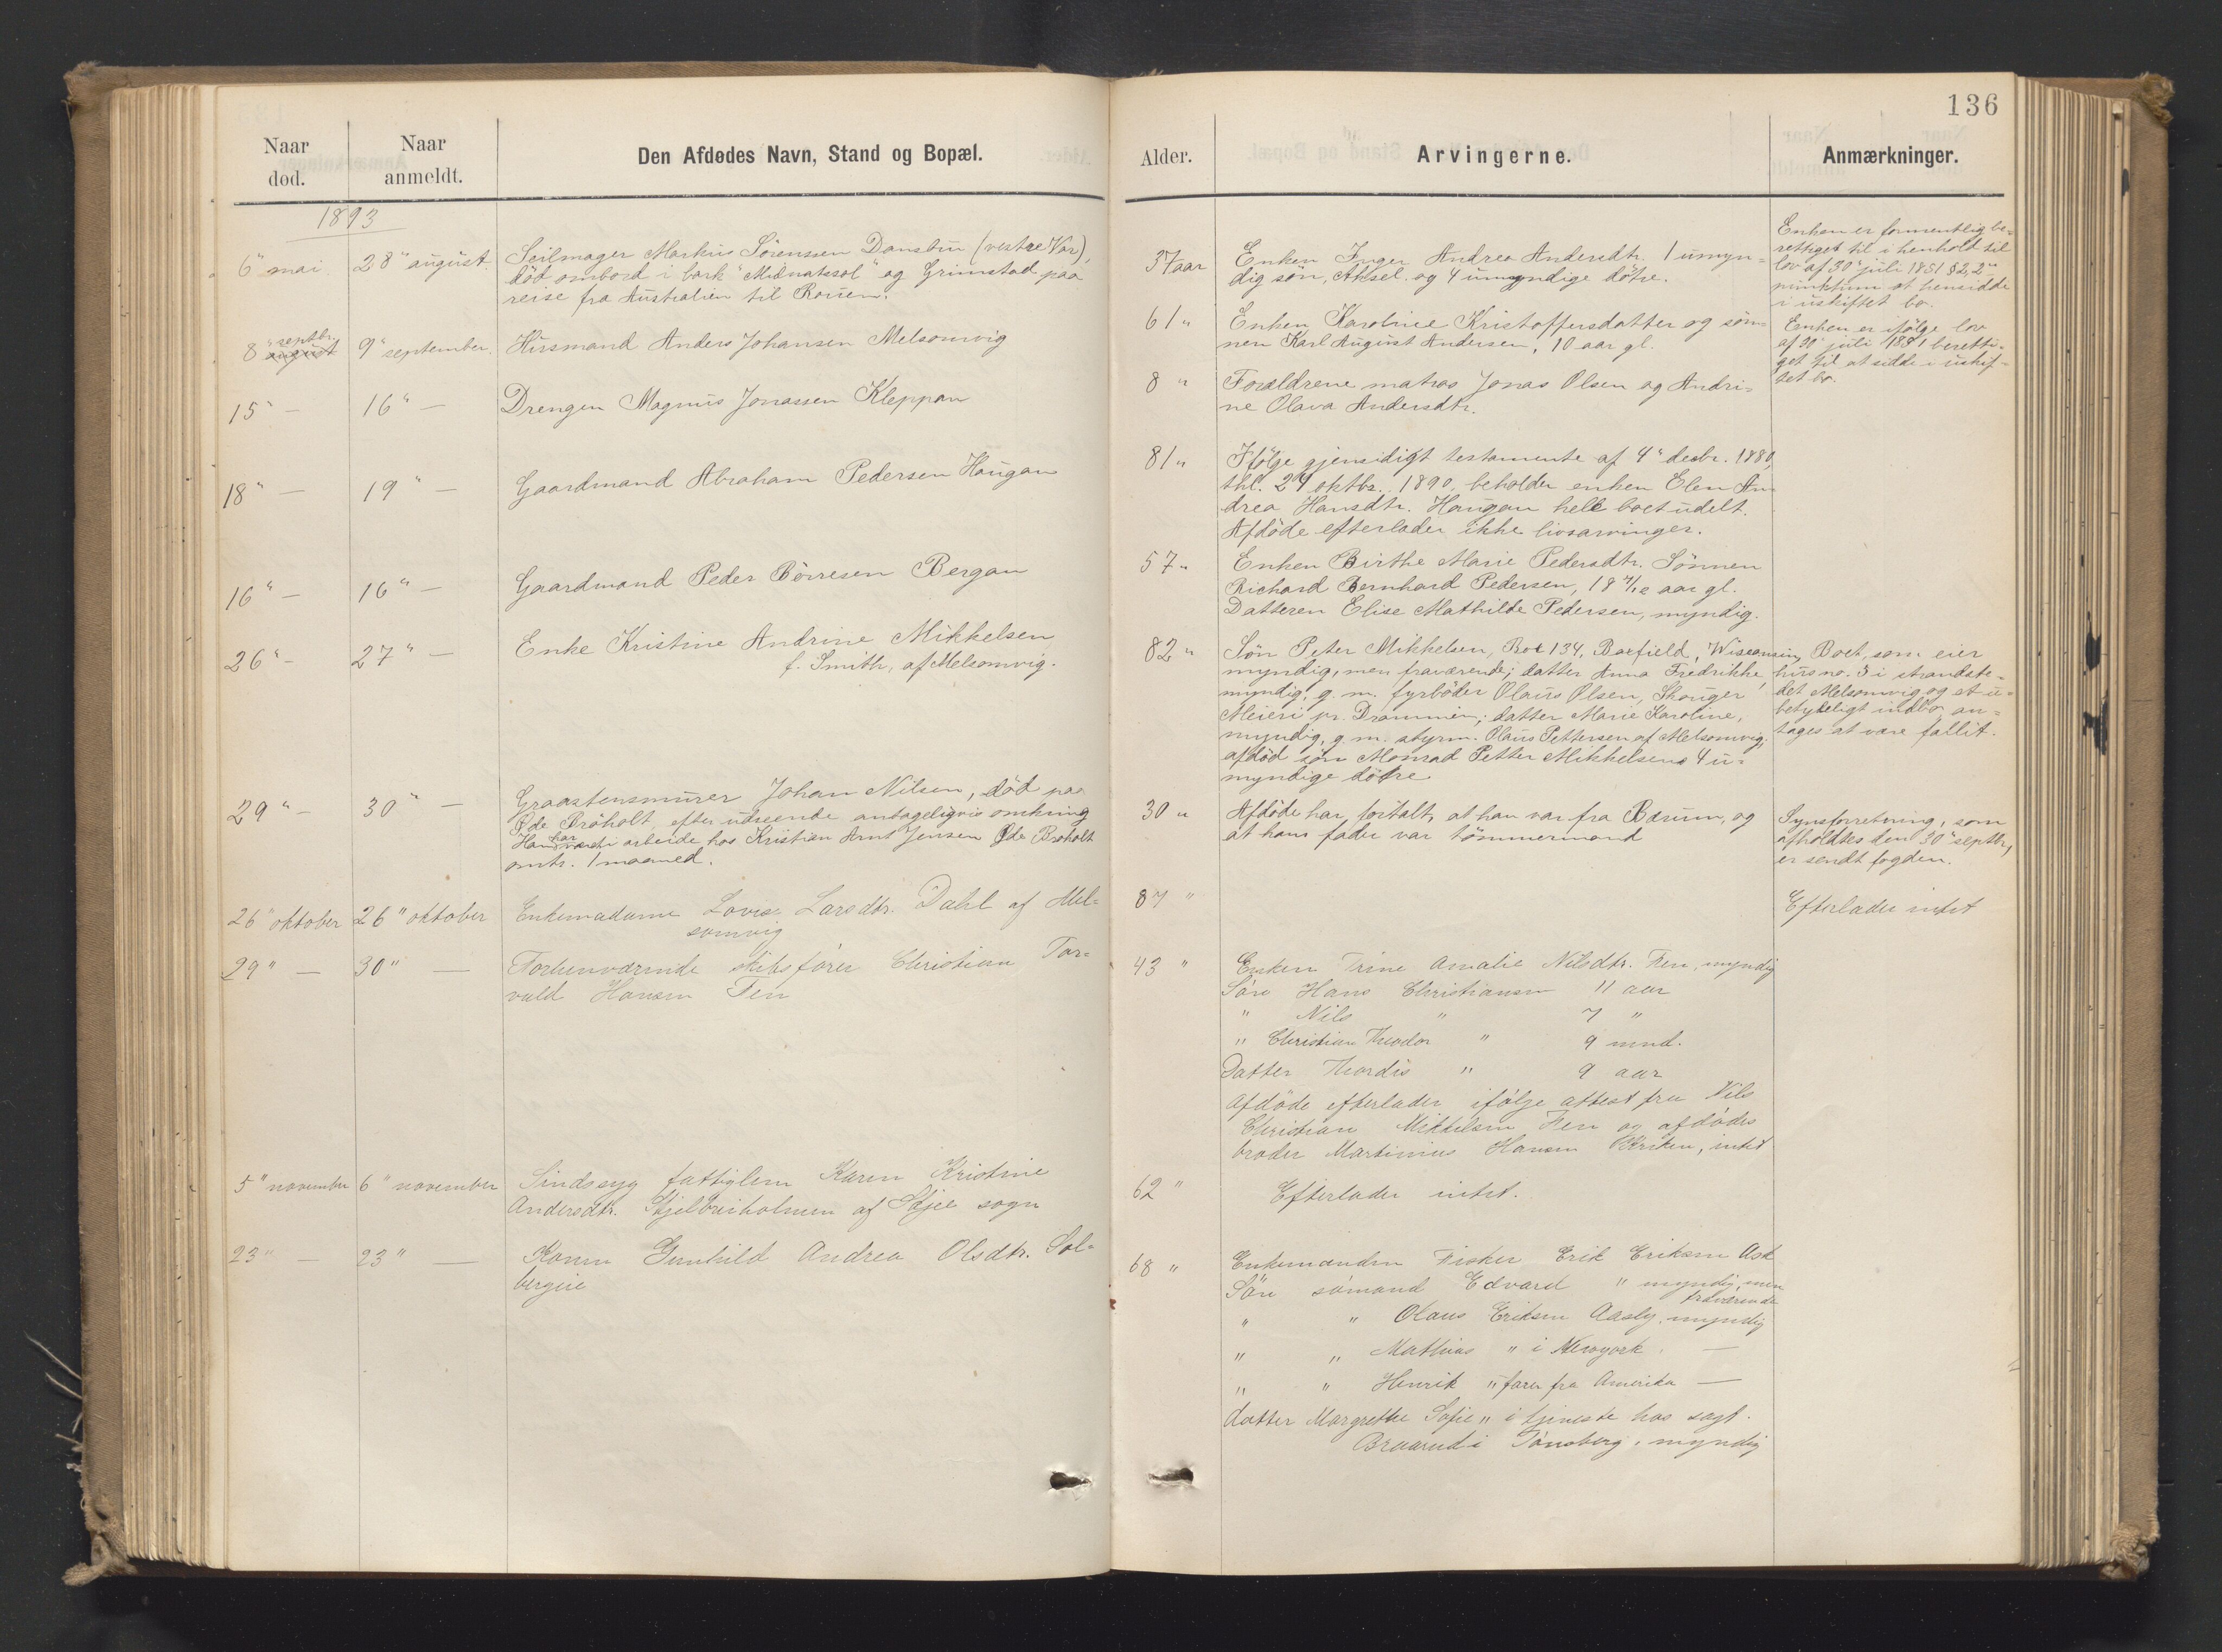 136
Naar død.
Naar anmeldt.
Den Afdødes Navn, Stand og Bopæl.
Alder.
Arvingerne.
Anmærkninger.
1893
6" mai
28" august
Seilmager Markus Sörenssen Danebu (vestre Kar),
död ombord i bark "Midnatssol" og Grimstad paa
reise fra Australien til Rouen.
37 aar
Enken Inger Andrea Andersdtr. 1 umyn=
dig sön, Aksel og 4 umyndige dötre.
Enken er formentlig be=
rettiget til i henhold til
lov af 30" juli 1851 § 2, 2"
punktum at hensidde
i uskiftet bo.
8" septbr. august
9" september
Husmand Anders Johansen Melsomvig
61 "
Enken Karoline Kristoffersdatter og söm=
nen Karl August Andersen, 10 aar gl.
Enken er ifölge lov
af 30" juli 1851 beretti=
get til at sidde i uskif=
tet bo.
15" —
16" —
Drengen Magnus Jonassen Kleppan
8 "
Forældrene matros Jonas Olsen og Andri=
ne Olava Andersdtr.
18" —
19" —
Gaardmand Abraham Pedersen Haugan
81 "
Ifölge gjensidigt testamente af 4" decbr. 1880,
thl. 24 oktbr. 1890, beholder enken Elen An=
drea Hansdtr. Haugan hele boet udelt.
Afdöde efterlader ikke livsarvinger.
16" —
16" —
Gaardmand Peder Börresen Bergan
57 "
Enken Birthe Marie Pedersdtr. Sönnen
Richard Bernhard Pedersen, 18 aar gl.
Datteren Elise Mathilde Pedersen, myndig.
26" —
27" —
Enke Kristine Andrine Mikkelsen
f. Smith, af Melsomvig.
82 "
Sön Peter Mikkelsen, Box 134, Barfield, Wisconsin,
myndig, men fraværende; datter Anna Fredrikke,
myndig, g. m. fyrböder Olaus Olsen, Skouger
Meieri pr. Drammen; datter Marie Karoline,
myndig, g. m. styrm. Olaus Pettersen af Melsomvig;
afdöd sön Monrad Petter Mikkelsens 4 u=
myndige dötre
Boet, som eier
hus no. 3 i strandste=
det Melsomvig og et u=
betydeligt indbo, an=
tages at være fallit.
29" —
30" —
Graastensmurer Johan Nilsen, död paa
Øde Bröholt, efter udseende antageligvis omkring
Han har været i arbeide hos Kristian Arnt Jensen Øde Broholt
omtr. 1 maaned.
30 "
Afdöde har fortalt, at han var fra Bærum, og
at hans fader var tömmermand
Synsforretning, som
afholdtes den 30" septbr,
er sendt fogden.
26" oktober
26" oktober
Enkemadame Lovise Larsdtr. Dahl af Mel=
somvig
87 "
Efterlader intet
29" —
30" —
Forhenværende skibsförer Christian Tor=
vald Hansen Fen
43 "
Enken Trine Amalie Nilsdtr. Fen, myndig
Sön Hans Christiansen 11 aar
" Nils " 7 "
" Christian Theodor " 9 mnd.
Datter Thordis " 9 aar
Afdöde efterlader ifölge attest fra Nils
Christian Mikkelsen Fen og afdödes
broder Martinius Hansen Virken, intet
5" november
6" november
Sindssyg fattiglem Karen Kristine
Andersdtr. Stjelbreiholmen af Skjee sogn
62 "
Efterlader intet.
23" —
23" —
Konen Gunhild Andrea Olsdtr. Sol=
bergeie
68 "
Enkemanden Fisker Erik Eriksen Ask
Sön sömand Edvard " myndig, men
fraværende
" " Olaus Eriksen Aasly, myndig
" " Mathias " i Newyork. —
" " Henrik " farer fra Amerika —
datter Margrethe Sofie " i tjeneste hos sagf.
Bruarud i Tönsberg, myndig